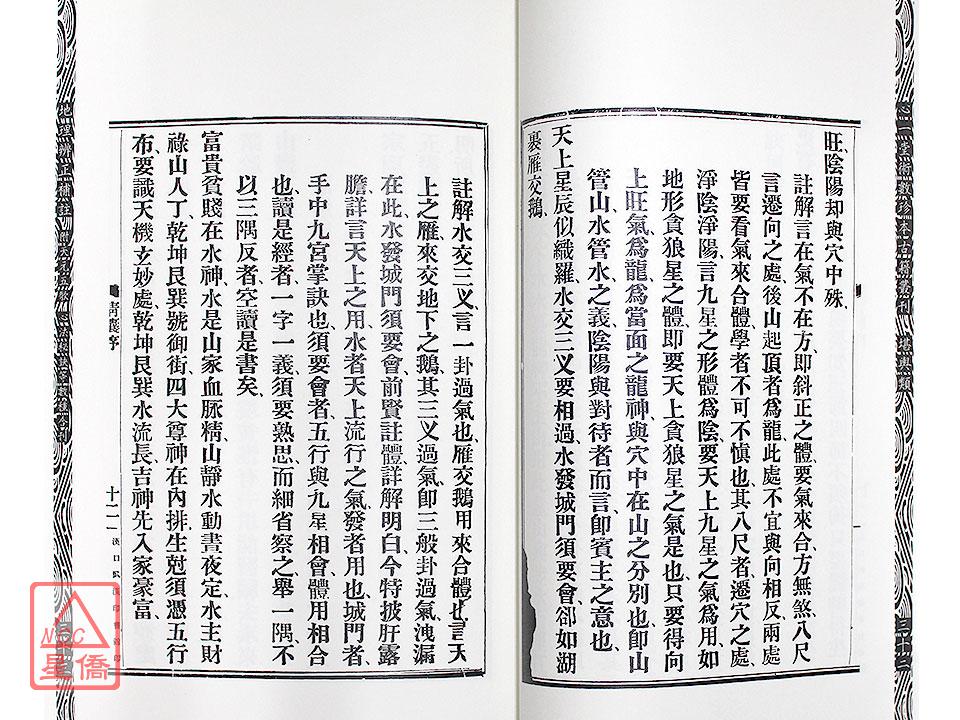 旺、陰陽却與穴中殊、
註解言在氣不在方、卽斜正之體要氣來合方無煞、八尺
言遷向之處、後山起頂者爲龍、此處不宜與向相反、兩處
皆要看氣來合體、學者不可不慎也、其八尺者遷穴之處、
淨陰淨陽、言九星之形體爲陰、要天上九星之氣爲用、如
地形貪狼星之體、卽要天上貪狼星之氣是也、只要得向
上旺氣爲龍、爲當面之龍神、與穴中在山之分別也、卽山
管山水管水之義、陰陽與對待者而言、卽賓主之意也、
天上星辰似織羅、水交三叉要相過、水發城門須要會、卻如湖
裏雁交鵝、
註解水交三叉、言一卦過氣也、雁交鵝用來合體也、言天
上之雁來交地下之鵝、其三叉過氣、卽三般卦過氣洩漏
在此、水發城門須要會、前賢註體詳解明白、今特披肝露
膽、詳言天上之用、水者天上流行之氣、發者用也、城門者
手中九宮掌訣也、須要會者、五行與九星相會、體用相合
也、讀是經者、一字一義、須要熟思而細省察之、舉一隅、不
以三隅反者、空讀是書矣、
富貴貧賤在水神、水是山家血脈精、山靜水動晝夜定、水主財
祿山人丁、乾坤艮巽號御街、四大尊神在內排、生尅須憑五行
布、要識天機玄妙處、乾坤艮巽水流長、吉神先入家豪富、
靑囊序
十一
三十三
NCC
星僑